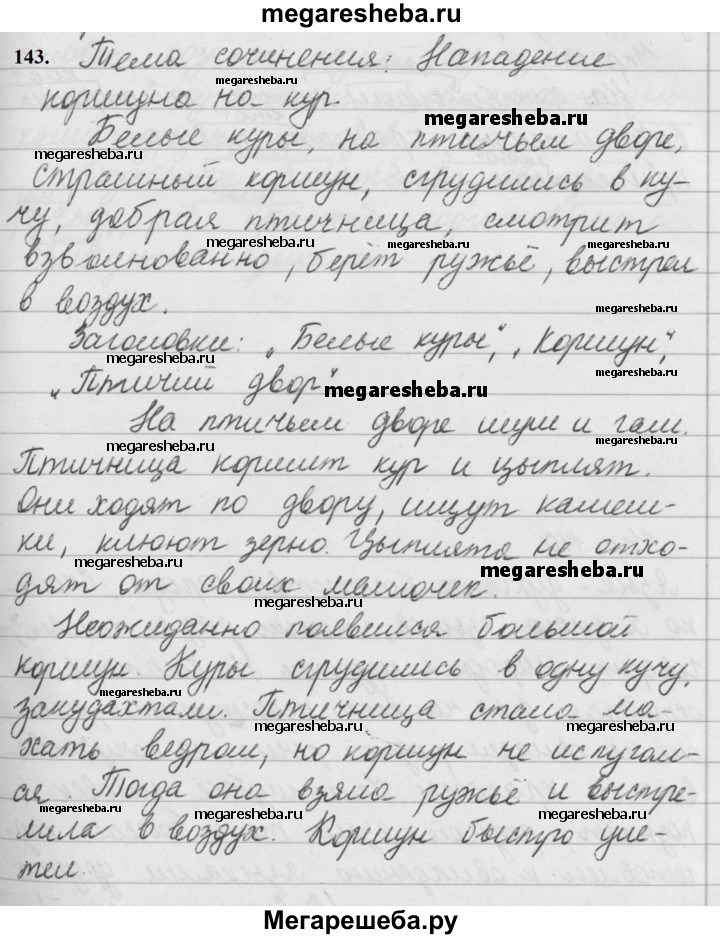 megaresheba.ru
143. Тема сочинения: Нападение
megaresheba.ru
коршуна на кур
megaresheba.ru
Белые куры, на птичьем дворе,
megaresheba.ru
страшный коршун, сгрудились в ку-
megaresheba.ru
чу, добрая птичница, смотрит
megaresheba.ru megaresheba.ru
взволнованно, берёт ружьё, выстрел
в воздух.
megaresheba.ru
Заголовки: „Белые куры", „Коршун",
megaresheba.ru
„Птичий двор"
megaresheba.ru
megaresheba.ru
На птичьем дворе шум и гам.
megaresheba.ru megaresheba.ru
Птичница кормит кур и цыплят.
Они ходят по двору, ищут камеш-
megaresheba.ru
ки, клюют зерно. Цыплята не отхо-
megaresheba.ru
megaresheba.ru
дят от своих мамочек.
megaresheba.ru
Неожиданно появился большой
megaresheba.ru
коршун. Куры сгрудились в одну кучу,
megaresheba.ru
закудахтали. Птичница стала ма-
megaresheba.ru megaresheba.ru
хать ведром, но коршун не испугал-
ся. Тогда она взяла ружьё и выстре-
megaresheba.ru megaresheba.ru
лила в воздух. Коршун быстро уле-
megaresheba.ru
тел.
Мегарешеба.ру